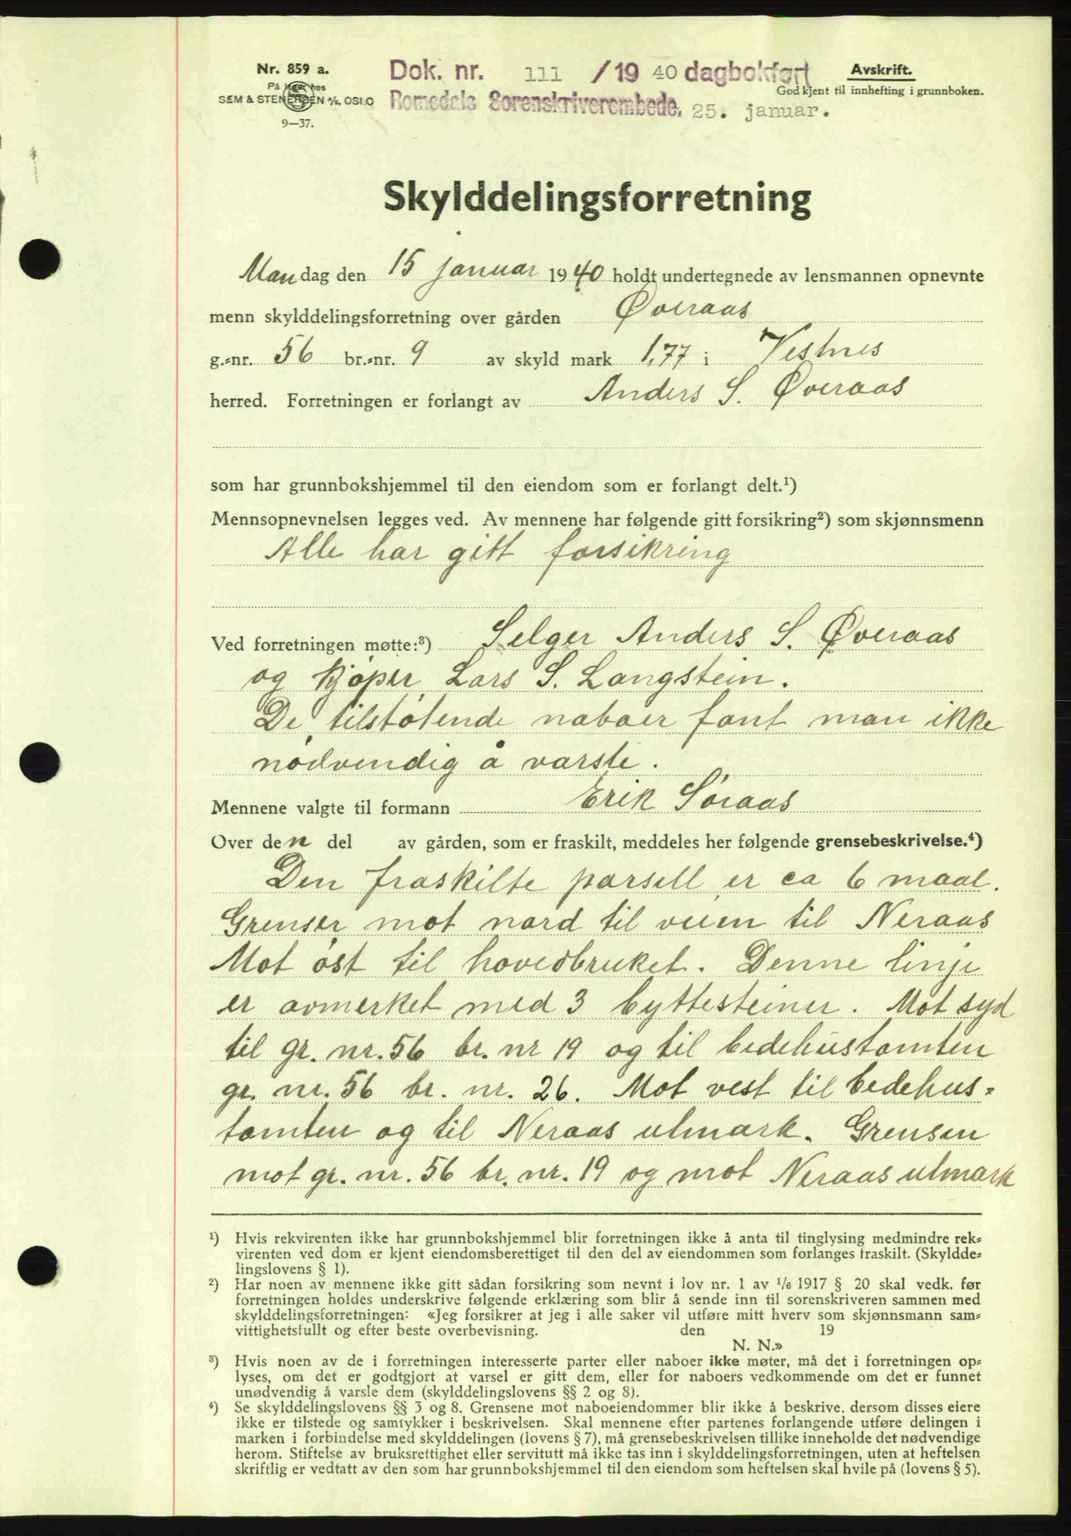 Nr. 859 a.
På lager hos
SEM & STENERSEN A/S, OSLO
9—37.
Dok. nr. 111 / 19 40 dagbokført
Romsdals Sorenskriverembede, 25. januar.
Avskrift.
Godkjent til innhefting i grunnboken.
Skylddelingsforretning
Mandag den 15 januar 1940 holdt undertegnede av lensmannen opnevnte
menn skylddelingsforretning over gården Øveraas
g.-nr. 56 br.-nr. 9 av skyld mark 1,77 i Vestnes
herred. Forretningen er forlangt av Anders S. Øveraas
som har grunnbokshjemmel til den eiendom som er forlangt delt.¹)
Mennsopnevnelsen legges ved. Av mennene har følgende gitt forsikring²) som skjønnsmenn
Alle har gitt forsikring
Ved forretningen møtte:³) Selger Anders S. Øveraas
og kjøper Lars S. Langstein.
De tilstøtende naboer fant man ikke
nødvendig å varsle.
Mennene valgte til formann Erik Søraas
Over den del av gården, som er fraskilt, meddeles her følgende grensebeskrivelse.⁴)
Den fraskilte parsell er ca 6 maal.
Grenser mot nord til veien til Neraas
Mot øst til hovedbruket. Denne linje
er avmerket med 3 byttesteiner. Mot syd
til gr. nr. 56 br. nr 19 og til bedehustomten
gr. nr. 56 br. nr. 26. Mot vest til bedehus-
tomten og til Neraas utmark. Grensen
mot gr. nr. 56 br. nr. 19 og mot Neraas utmark
¹) Hvis rekvirenten ikke har grunnbokshjemmel blir forretningen ikke å anta til tinglysing medmindre rek-
virenten ved dom er kjent eiendomsberettiget til den del av eiendommen som forlanges fraskilt. (Skyldde-
lingslovens § 1).
²) Har noen av mennene ikke gitt sådan forsikring som nevnt i lov nr. 1 av 1/6 1917 § 20 skal vedk. før
forretningen holdes underskrive følgende erklæring som blir å sende inn til sorenskriveren sammen med
skylddelingsforretningen: «Jeg forsikrer at jeg i alle saker vil utføre mitt hverv som skjønnsmann sam-
vittighetsfullt og efter beste overbevisning. den 19
N. N.»
³) Hvis noen av de i forretningen interesserte parter eller naboer ikke møter, må det i forretningen op-
lyses, om det er godtgjort at varsel er gitt dem, eller for naboers vedkommende om det er funnet
unødvendig å varsle dem (skylddelingslovens §§ 2 og 8).
⁴) Se skylddelingslovens §§ 3 og 8. Grensene mot naboeiendommer blir ikke å beskrive, dersom disses eiere
ikke er tilstede og samtykker i beskrivelsen. Skal mennene efter partenes forlangende utføre delingen i
marken i forbindelse med skylddelingen (lovens § 7), må grensebeskrivelsen tillike inneholde det nødvendige
herom. Stiftelse av bruksrettighet eller servitutt må ikke tas inn i skylddelingsforretningen, uten at heftelsen
skriftlig er vedtatt av den som har grunnbokshjemmel til den eiendom som heftelsen skal hvile på (lovens § 5).